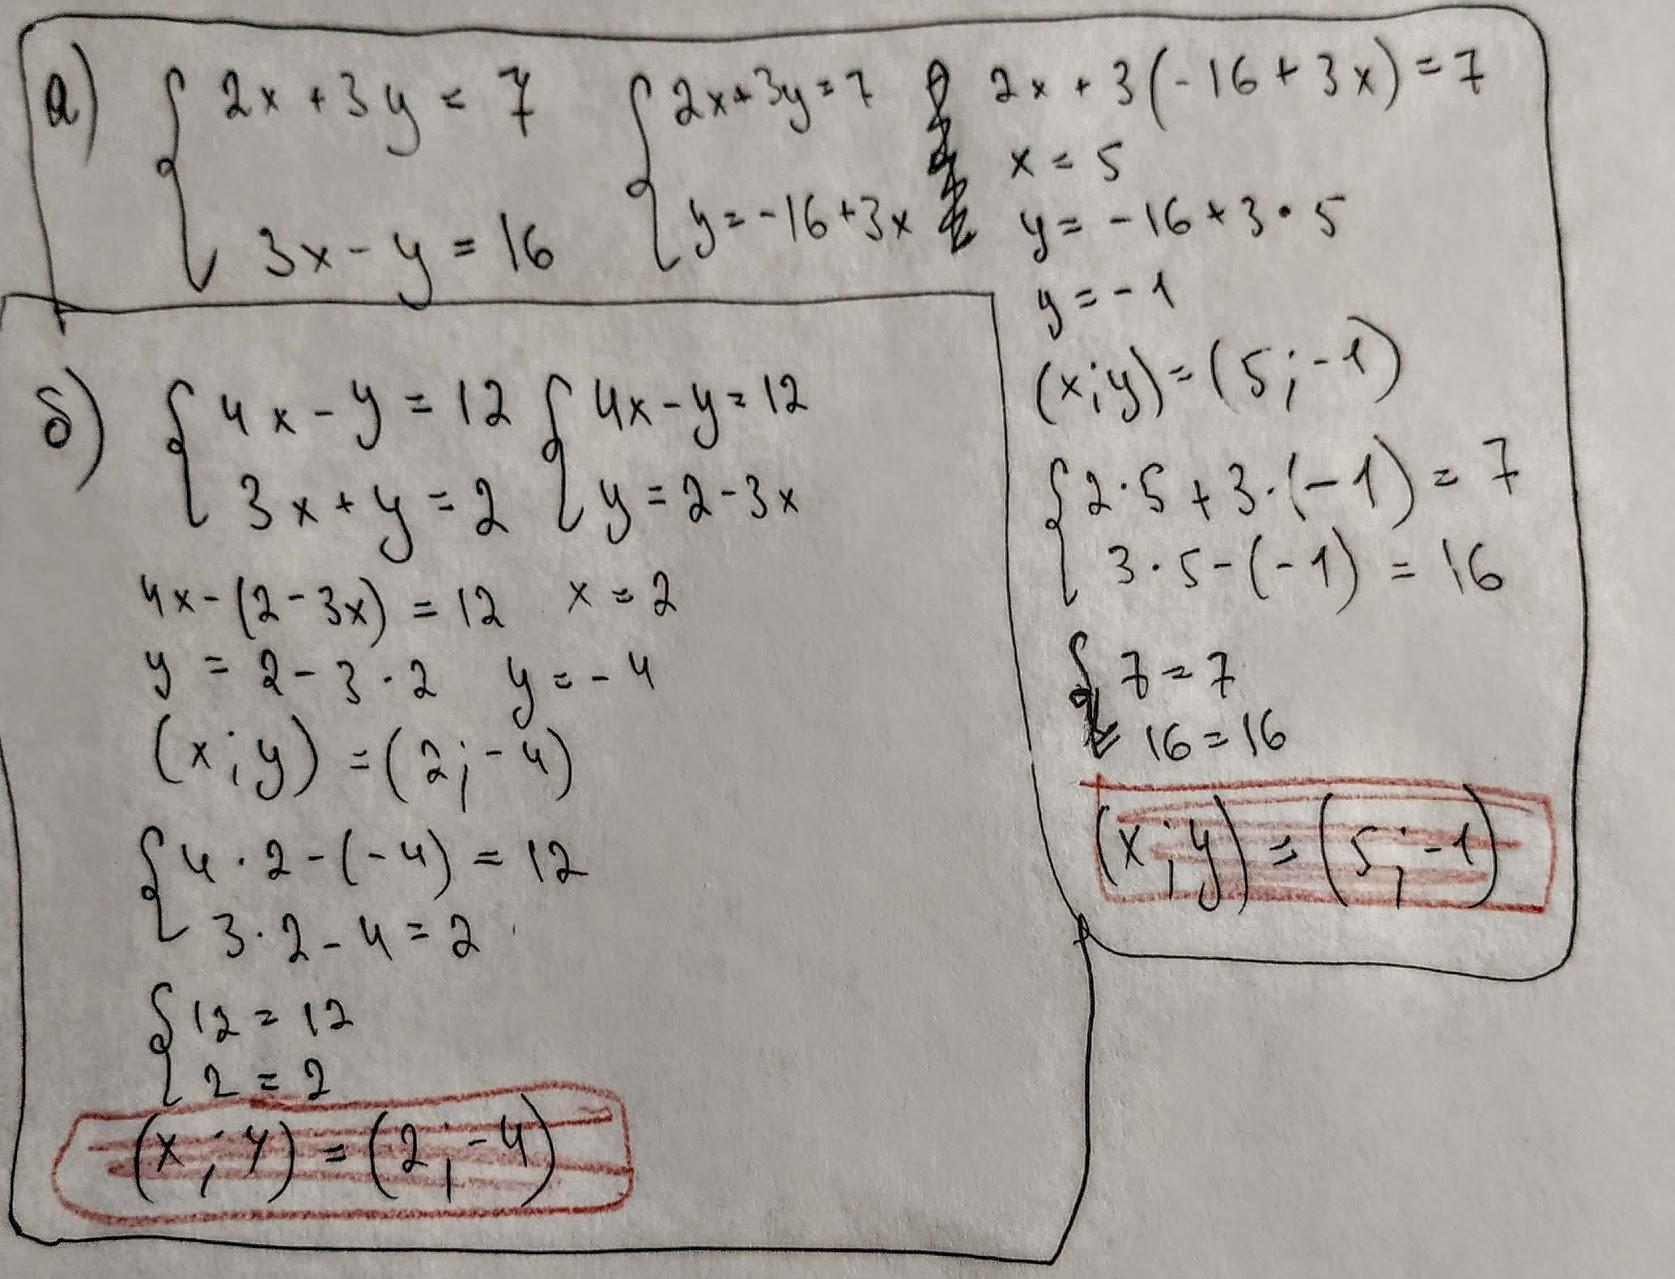 а) { 2x + 3y = 7
3x - y = 16
{ 2x + 3y = 7
y = -16 + 3x
2x + 3(-16 + 3x) = 7
x = 5
y = -16 + 3 · 5
y = -1
(x; y) = (5; -1)
{ 2 · 5 + 3 · (-1) = 7
3 · 5 - (-1) = 16
{ 7 = 7
16 = 16
(x; y) = (5; -1)
б) { 4x - y = 12
3x + y = 2
{ 4x - y = 12
y = 2 - 3x
4x - (2 - 3x) = 12 x = 2
y = 2 - 3 · 2 y = -4
(x; y) = (2; -4)
{ 4 · 2 - (-4) = 12
3 · 2 - 4 = 2
{ 12 = 12
2 = 2
(x; y) = (2; -4)